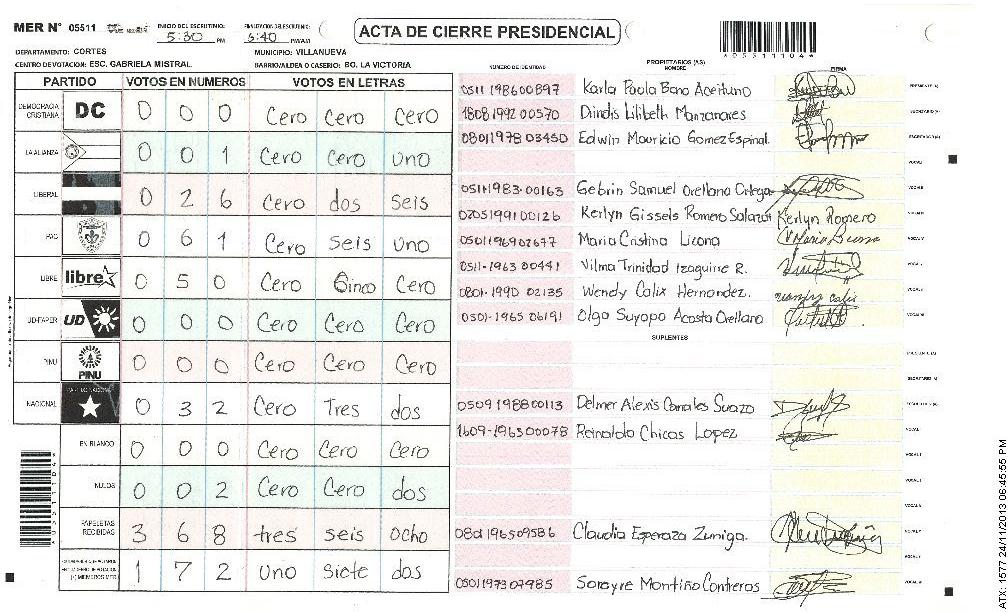 MER N° 05511 INICIO DEL ESCRUTINIO: 5:30 PM FINALIZACION DEL ESCRUTINIO: 6:40 PM/AM
ACTA DE CIERRE PRESIDENCIAL
*05511104*
DEPARTAMENTO: CORTES MUNICIPIO: VILLANUEVA
CENTRO DE VOTACION: ESC. GABRIELA MISTRAL BARRIO/ALDEA O CASERIO: BO. LA VICTORIA
PARTIDO VOTOS EN NUMEROS VOTOS EN LETRAS
DEMOCRACIA CRISTIANA DC 0 0 0 Cero Cero Cero
LA ALIANZA 0 0 1 Cero Cero uno
LIBERAL 0 2 6 Cero dos seis
PAC 0 6 1 Cero seis uno
LIBRE libre 0 5 0 Cero Cinco Cero
UD-FAPER UD 0 0 0 Cero Cero Cero
PINU PINU 0 0 0 Cero Cero Cero
NACIONAL PARTIDO NACIONAL 0 3 2 Cero Tres dos
EN BLANCO 0 0 0 Cero Cero Cero
NULOS 0 0 2 Cero Cero dos
PAPELETAS RECIBIDAS 3 6 8 tres seis ocho
1 7 2 uno siete dos
NUMERO DE IDENTIDAD PROPIETARIOS (AS) NOMBRE FIRMA
0511 198600897 Karla Paola Bano Aceituno PRESIDENTE (A)
1808 1992 00570 Dindis Lilibeth Manzanares SECRETARIO (A)
0801 1978 03450 Edwin Mauricio Gomez Espinal ESCRUTADOR (A)
0511-1983-00163 Gebrin Samuel Orellana Ortega
0205199100126 Kerlyn Gissels Romero Salazar Kerlyn Romero
0501196902677 Maria Cristina Licona
0511-1963 00441 Vilma Trinidad Izaguirre R.
0801-1990 02135 Wendy Calix Hernandez.
0501-1965 06191 Olga Suyapa Acosta Orellana
SUPLENTES
0509198800113 Delmer Alexis Canales Suazo
1609-196300078 Reinaldo Chicas Lopez
0801196509586 Claudia Esperaza Zuniga.
0501197307985 Sorayre Montiño Contreros
ATX: 1577 24/11/2013 06:45:55 PM